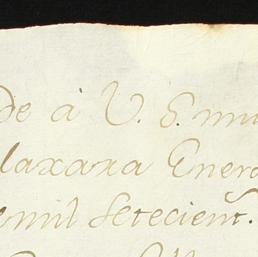 de à V. S. mu
laxara Enero
mil Setecient.